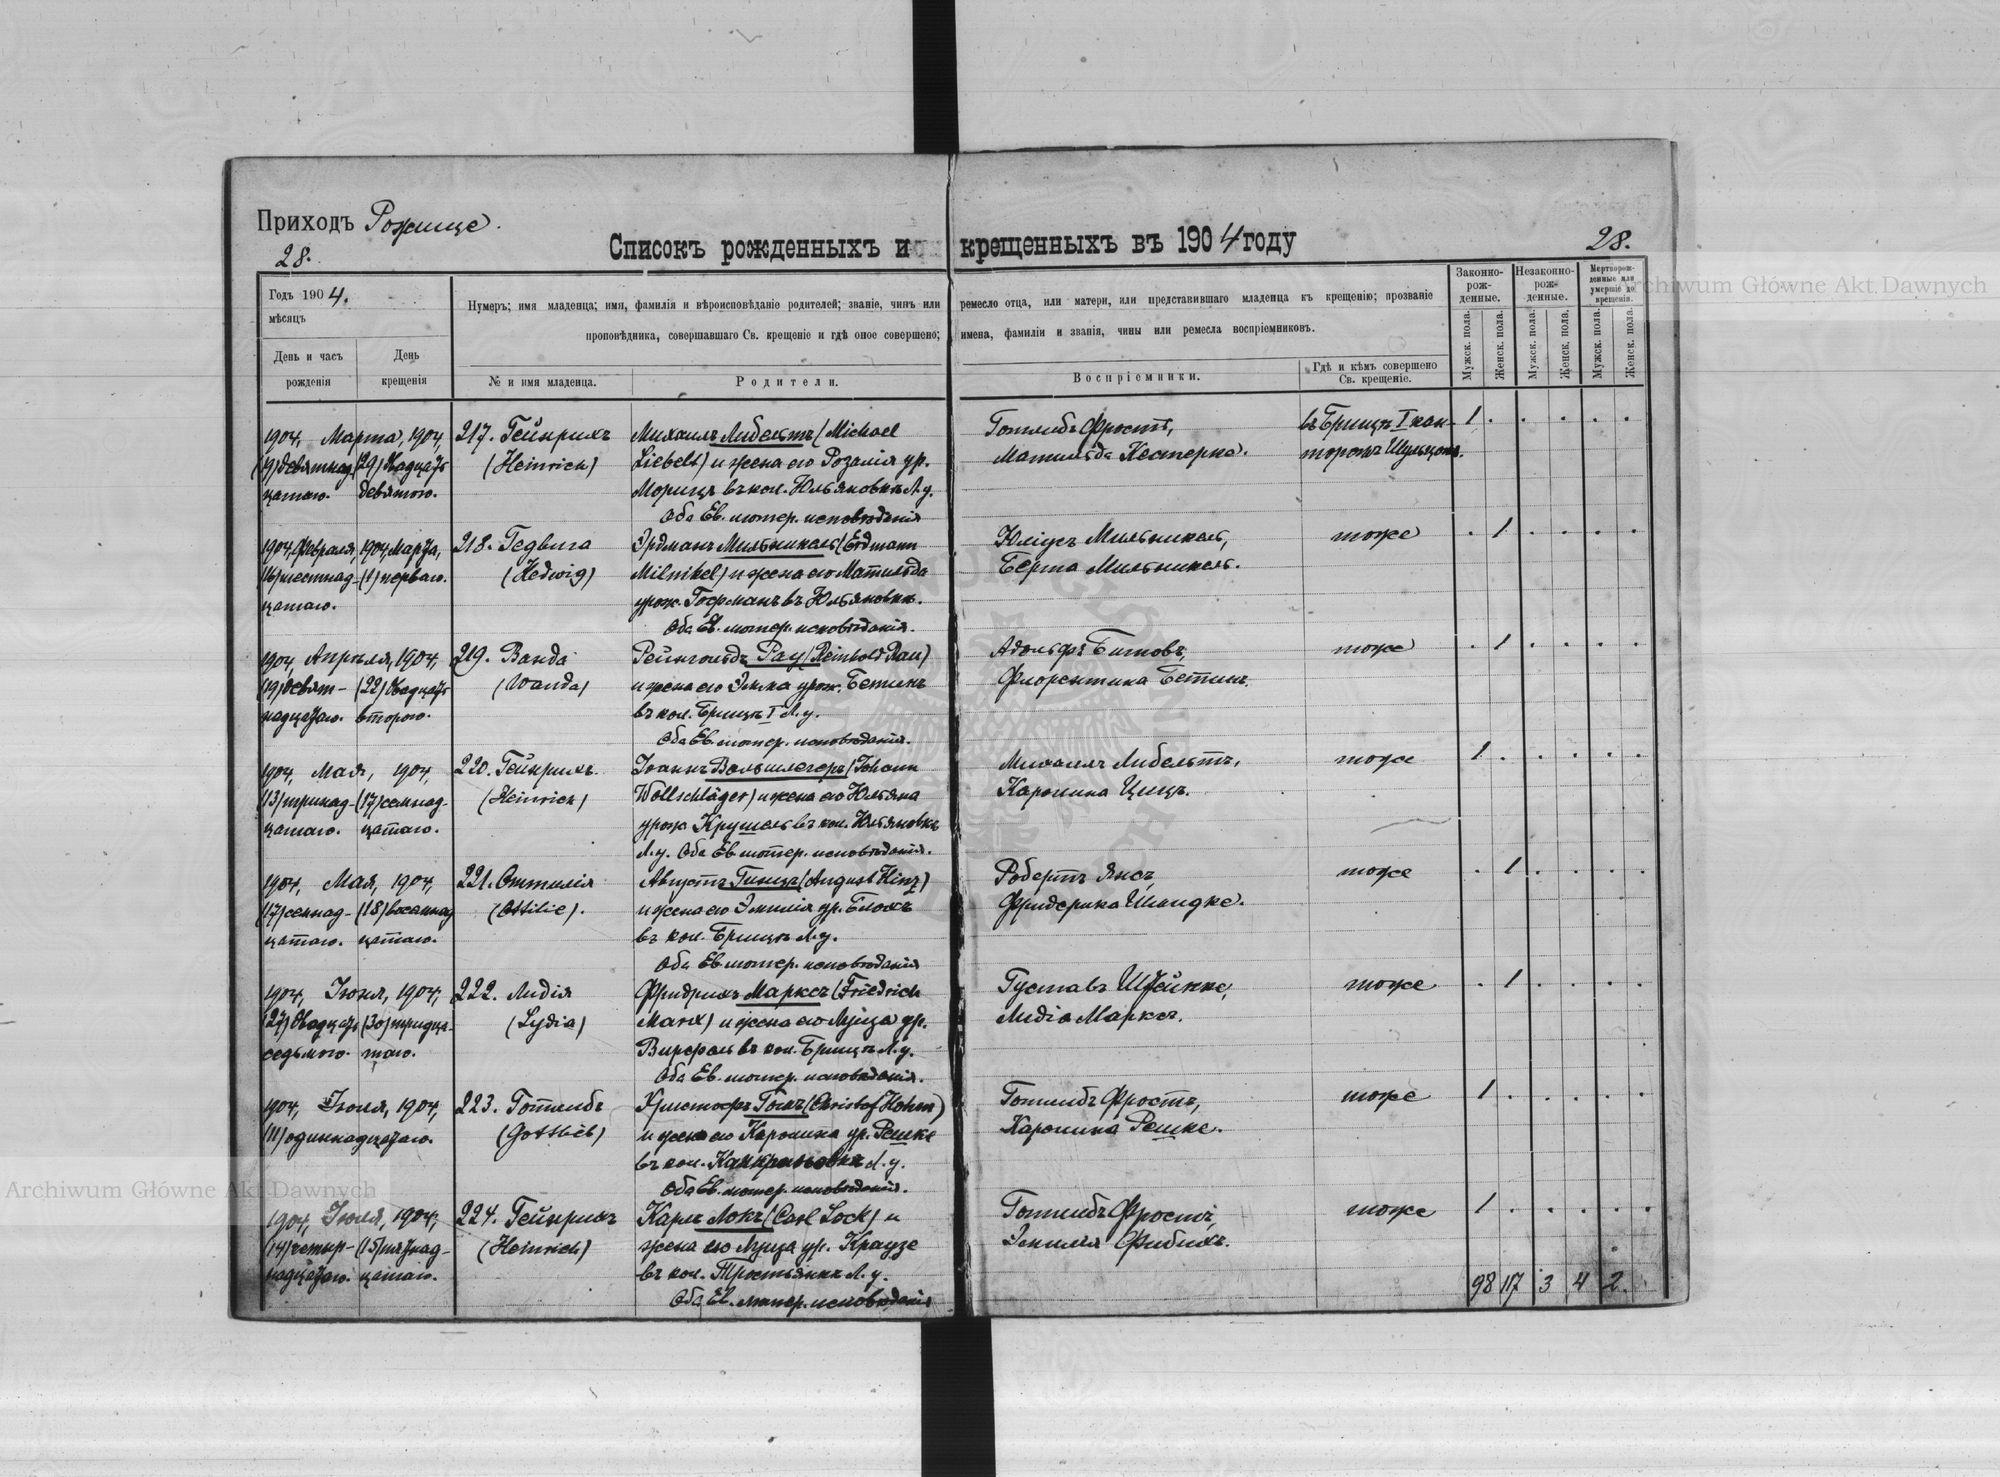 Приходъ Рожище.
28.
Списокъ рожденныхъ и крещенныхъ въ 1904 году
28.
Годъ 1904.
мѣсяцъ
День и часъ рожденія
День крещенія
Нумеръ; имя младенца; имя, фамилія и вѣроисповѣданіе родителей; званіе, чинъ или ремесло отца, или матери, или представившаго младенца къ крещенію; прозваніе
проповѣдника, совершавшаго Св. крещеніе и гдѣ оное совершено; имена, фамиліи и званія, чины или ремесла воспріемниковъ.
№ и имя младенца.
Родители.
Воспріемники.
Гдѣ и кѣмъ совершено
Св. крещеніе.
Законно-
рож-
денные.
Незаконно-
рож-
денные.
Мертворож-
денные или
умершіе до
крещенія.
Мужск. пола.
Женск. пола.
Мужск. пола.
Женск. пола.
Мужск. пола.
Женск. пола.
1904, Марта, 1904, 217. Гейнрихъ Михаилъ Либельтъ (Michael Готлибъ Фростъ, въ Брищъ I кан- 1 . . . . .
(19) девятнад- (29) двадцать (Heinrich) Liebelt) и жена его Розалія ур. Матильда Кестерке. торомъ Шульцомъ.
цатаго. девятого. Морицъ въ кол. Юльяновкѣ Л.у.
Оба Ев. лютер. исповѣданія
1904, Февраля 1904, Марта, 218. Гедвига Эрдманъ Мильникель (Erdmann Юліусъ Мильникель, тоже . 1 . . . .
(16) шестнад- (1) перваго. (Hedwig) Milnikel) и жена его Матильда Берта Мильникель.
цатаго. урож. Гофманъ въ Юльяновкѣ.
Оба Ев. лютер. исповѣданія.
1904, Апрѣля, 1904, 219. Ванда Рейнгольдъ Рау (Reinhold Rau) Адольфъ Битовъ, тоже . 1 . . . .
(19) девят- (22) двадцать (Wanda) и жена его Эмма урож. Бетинъ Флорентина Бетинъ.
надцатаго. второго. въ кол. Брищѣ I Л.у.
Оба Ев. лютер. исповѣданія.
1904, Мая, 1904, 220. Гейнрихъ. Іоаннъ Вольшлегеръ (Johann Михаилъ Либельтъ, тоже 1 . . . . .
(13) тринад- (17) семнад- (Heinrich) Wollschläger) и жена его Юльяна Каролина Цицъ.
цатаго. цатаго. урож. Крушель въ кол. Юльяновкѣ
Л.у. Оба Ев. лютер. исповѣданія.
1904, Мая, 1904, 221. Оттилія Августъ Гинцъ (August Hinz) Робертъ Янсъ, тоже . 1 . . . .
(17) семнад- (18) восемнад- (Ottilie). и жена его Эмилія ур. Блокъ Фридерика Шмидке.
цатаго. цатаго. въ кол. Брищѣ Л.у.
Оба Ев. лютер. исповѣданія
1904, Іюня, 1904, 222. Лидія Фридрихъ Марксъ (Friedrich Густавъ Штейнке, тоже . 1 . . . .
(27) двадцать (30) тридца- (Lydia) Marx) и жена его Луиза ур. Лидія Марксъ.
седьмого. таго. Вирфель въ кол. Брищѣ Л.у.
Оба Ев. лютер. исповѣданія.
1904, Іюля, 1904, 223. Готлибъ Христофъ Гомъ (Christof Hohm) Готлибъ Фростъ, тоже 1 . . . . .
(11) одиннадцатаго. (Gottlieb) и жена его Каролина ур. Решке Каролина Решке.
въ кол. Л.у.
Оба Ев. лютер. исповѣданія.
1904, Іюля, 1904, 224. Гейнрихъ Карлъ Локъ (Carl Lock) и Готлибъ Фростъ, тоже 1 . . . . .
(14) четыр- (15) пятнад- (Heinrich) жена его Луиза ур. Краузе Эмилія Фибихъ.
надцатаго. цатаго. въ кол. Тростянкѣ Л.у.
Оба Ев. лютер. исповѣданія
98 117 3 4 2.
Archiwum Główne Akt Dawnych
Archiwum Główne Akt Dawnych